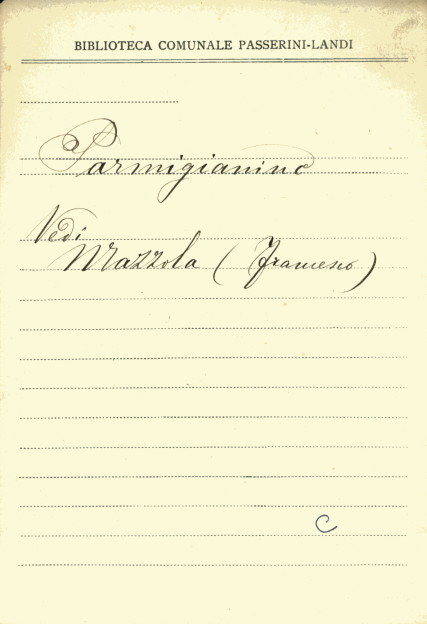 BIBLIOTECA COMUNALE PASSERINI-LANDI
Parmigianino
Vedi
Mazzola (Francesco)
C